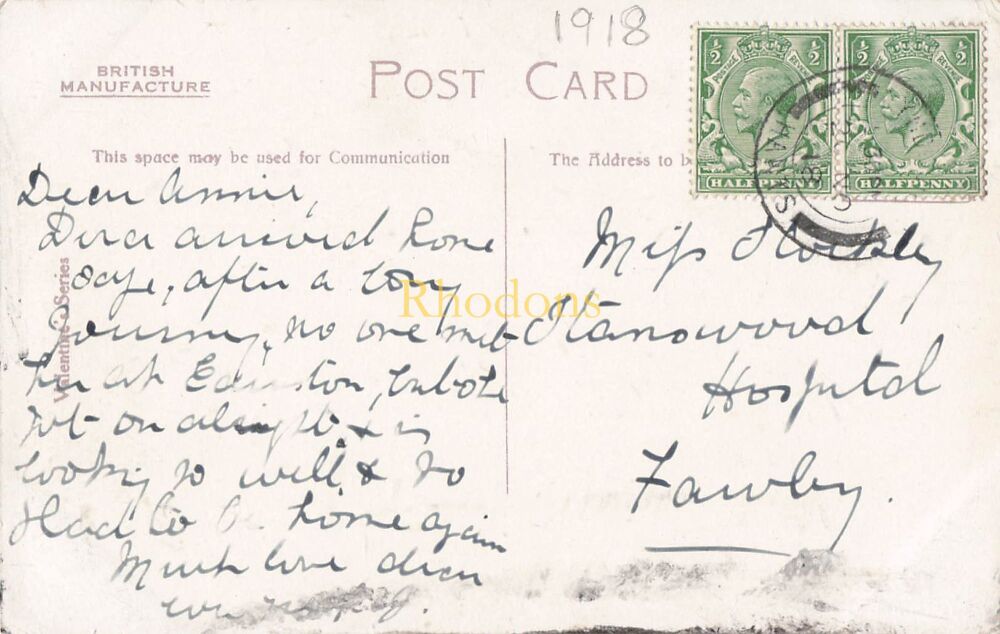 1918
BRITISH
MANUFACTURE
POST CARD
1/2 1/2
POSTAGE REVENUE
HALFPENNY
1/2 1/2
HALFPENNY
HANTS
This space may be used for Communication
The Address to b
Valentine's Series
Dear Annie,
arrived home
safe, after a long
journey, no one met
her at Euston, but she
got on alright & is
looking so well, & so
glad to be home again
Much love dear
Miss
Stanswood
Hospital
Fawley.
Rhodons